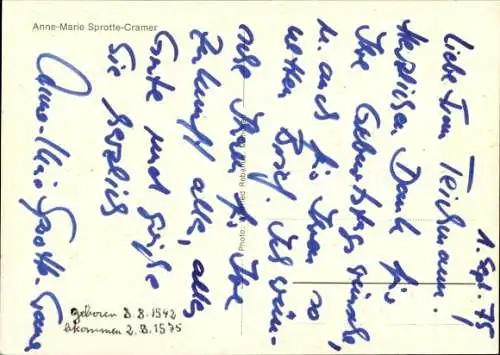 Anne-Marie Sprotte-Cramer
1. Sept. 75
Liebe Frau Teichmann!
Herzlichen Dank für
Ihre Geburtstagswünsche,
u. auch für Ihren so
netten Brief. Ich wün-
sche Ihnen für Ihre
Zukunft alles, alles
Gute und grüße
Sie herzlich
Anne-Marie Sprotte-Cramer
Photo:
geboren 8.8.1942
bekommen 2.8.1975